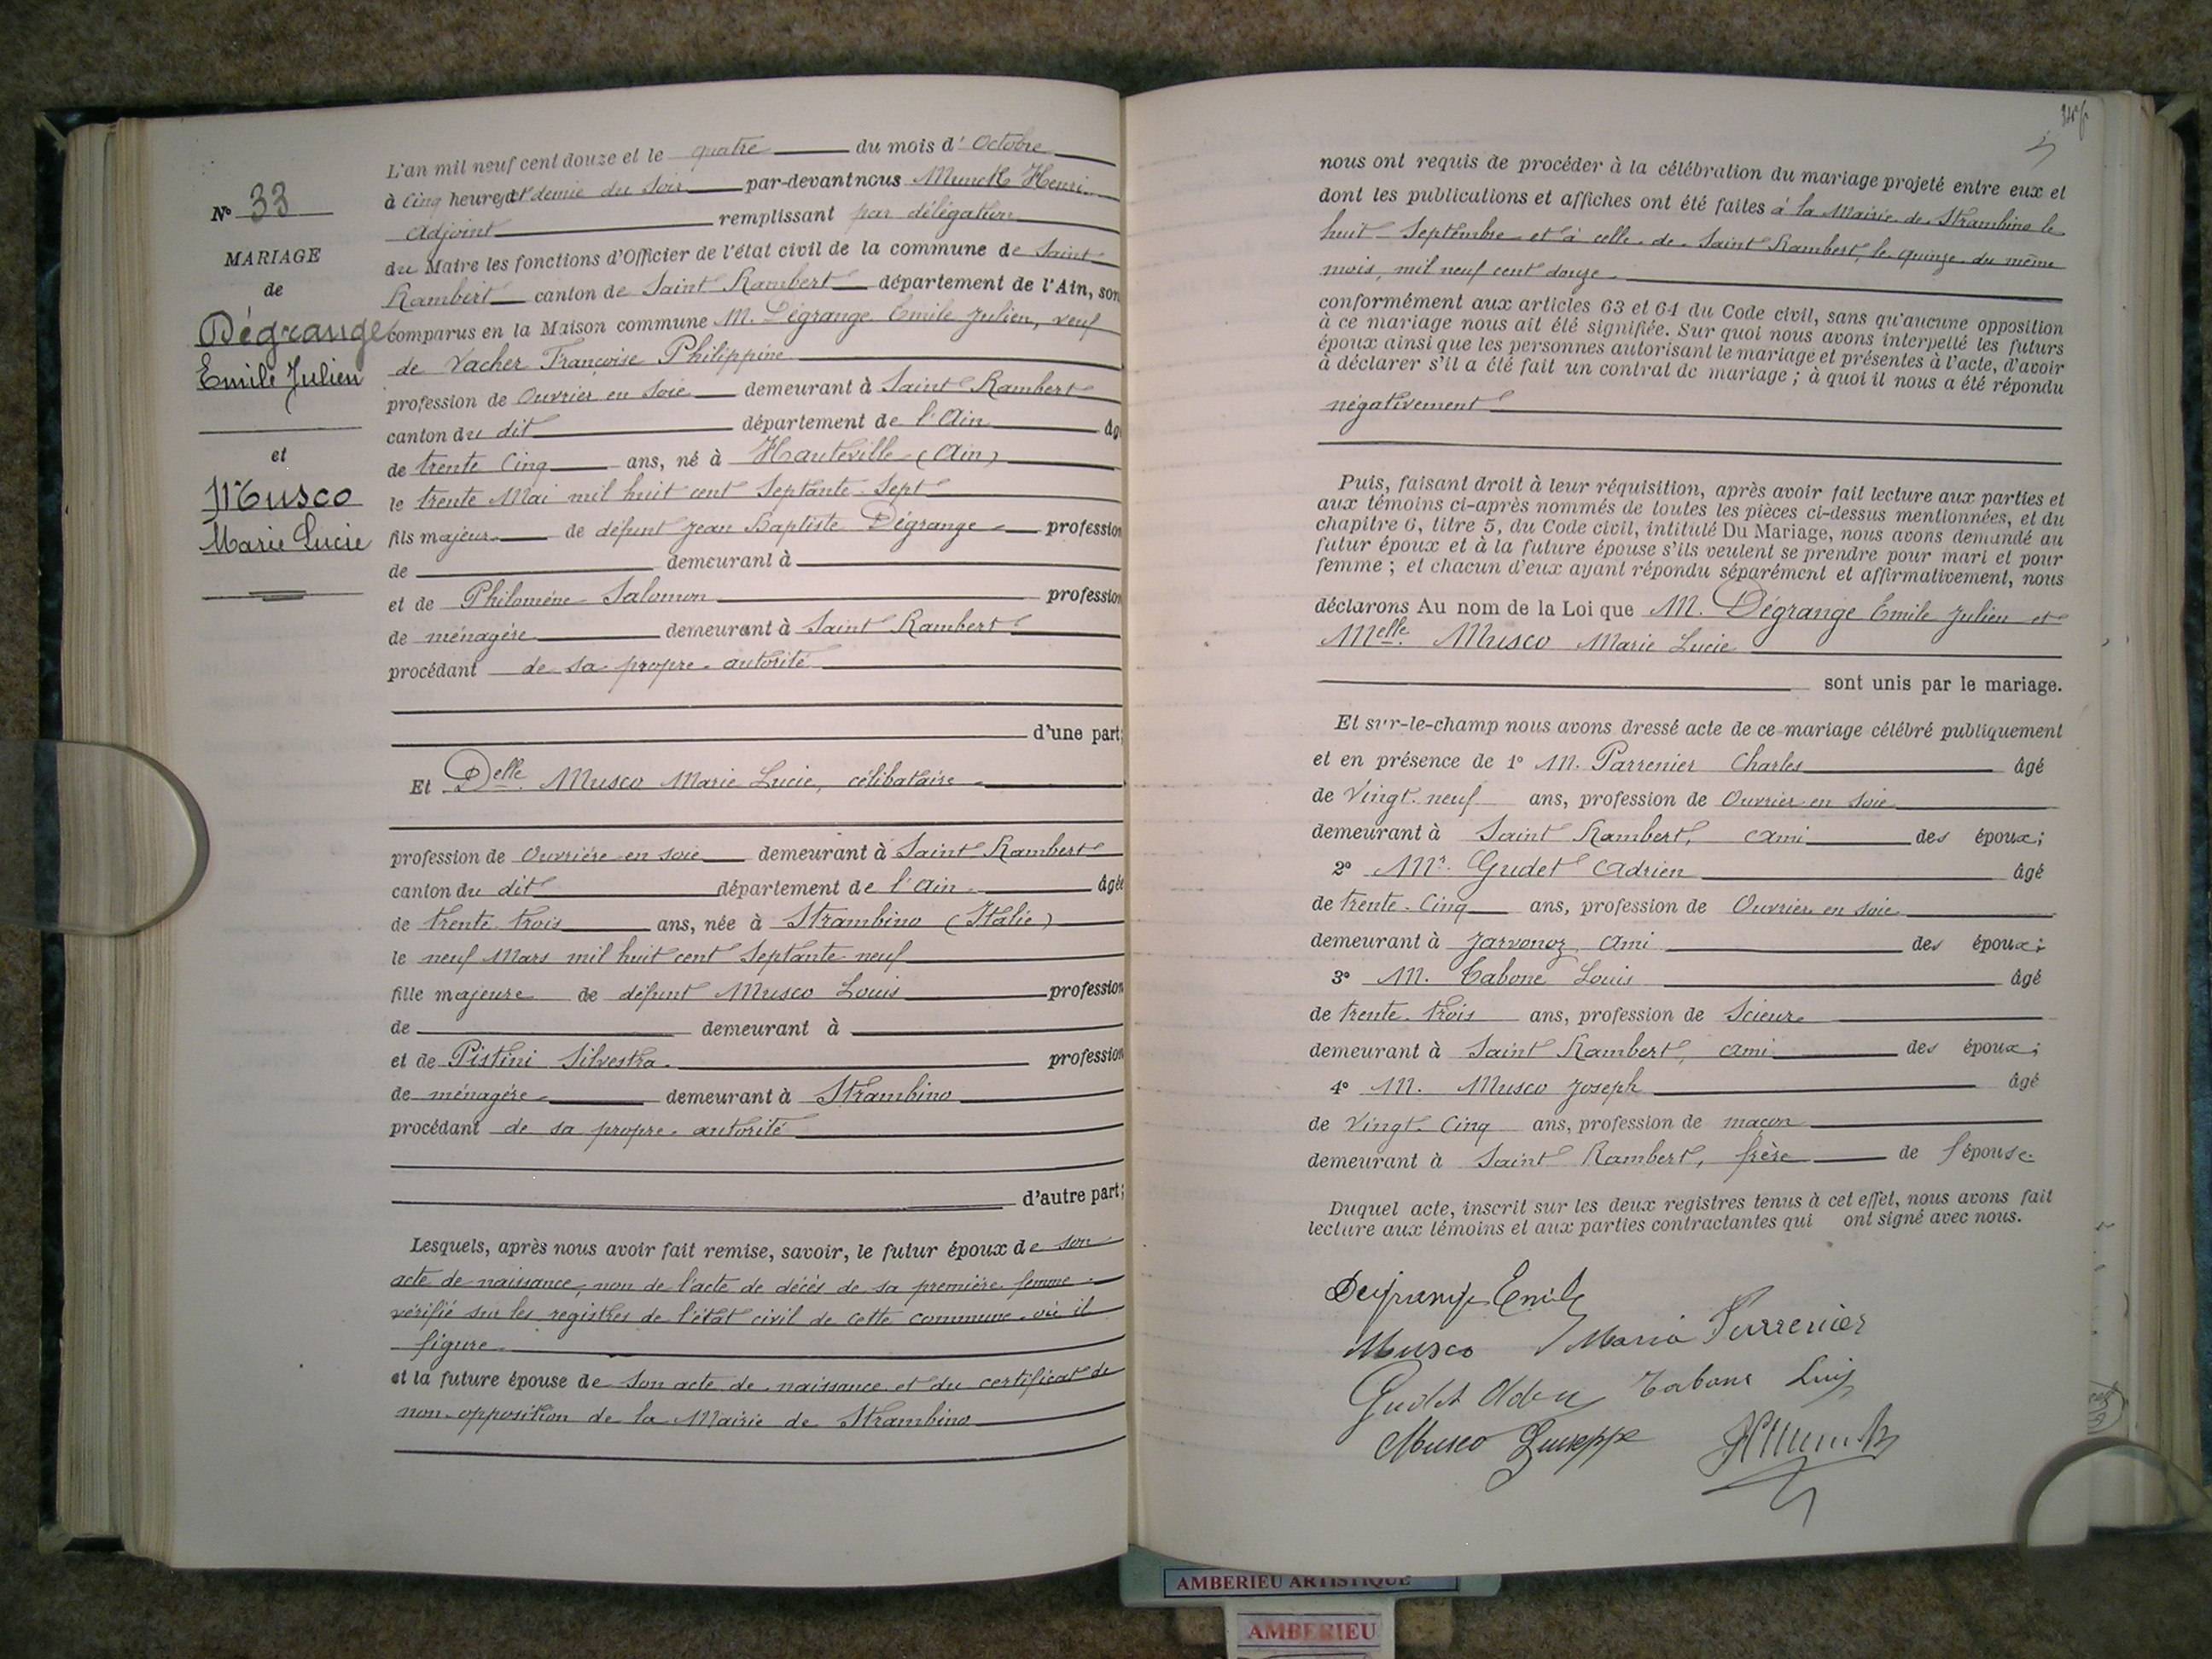 N° 33
MARIAGE
de
Dégrange
Emile Julien
et
Musco
Marie Lucie
L'an mil neuf cent douze et le quatre du mois d'Octobre
à cinq heures et demie du soir par-devant nous Munck Henri
adjoint remplissant par délégation
du Maire les fonctions d'Officier de l'état civil de la commune de Saint
Rambert canton de Saint Rambert département de l'Ain, son
comparus en la Maison commune M. Dégrange Emile Julien, veuf
de Vacher Françoise Philippine
profession de Ouvrier en soie demeurant à Saint Rambert
canton du dit département de l'Ain âg
de trente cinq ans, né à Hauteville (Ain)
le trente Mai mil huit cent septante-sept
fils majeur de défunt Jean Baptiste Dégrange profession
de demeurant à
et de Philomène Salomon profession
de ménagère demeurant à Saint Rambert
procédant de sa propre autorité
d'une part;
Et Delle Musco Marie Lucie, célibataire
profession de Ouvrière en soie demeurant à Saint Rambert
canton du dit département de l'Ain âgée
de trente-trois ans, née à Strambino (Italie)
le neuf Mars mil huit cent septante-neuf
fille majeure de défunt Musco Louis profession
de demeurant à
et de Pistini Silvestra profession
de ménagère demeurant à Strambino
procédant de sa propre autorité
d'autre part;
Lesquels, après nous avoir fait remise, savoir, le futur époux de son
acte de naissance, non de l'acte de décès de sa première femme
vérifié sur les registres de l'état civil de cette commune où il
figure
et la future épouse de son acte de naissance et du certificat de
non-opposition de la Mairie de Strambino
nous ont requis de procéder à la célébration du mariage projeté entre eux et
dont les publications et affiches ont été faites à la Mairie de Strambino le
huit Septembre et à celle de Saint Rambert, le quinze du même
mois, mil neuf cent douze
conformément aux articles 63 et 64 du Code civil, sans qu'aucune opposition
à ce mariage nous ait été signifiée. Sur quoi nous avons interpellé les futurs
époux ainsi que les personnes autorisant le mariage et présentes à l'acte, d'avoir
à déclarer s'il a été fait un contrat de mariage; à quoi il nous a été répondu
négativement
Puis, faisant droit à leur réquisition, après avoir fait lecture aux parties et
aux témoins ci-après nommés de toutes les pièces ci-dessus mentionnées, et du
chapitre 6, titre 5, du Code civil, intitulé Du Mariage, nous avons demandé au
futur époux et à la future épouse s'ils veulent se prendre pour mari et pour
femme; et chacun d'eux ayant répondu séparément et affirmativement, nous
déclarons Au nom de la Loi que M. Dégrange Emile Julien et
Melle Musco Marie Lucie
sont unis par le mariage.
Et sur-le-champ nous avons dressé acte de ce mariage célébré publiquement
et en présence de 1° M. Parrenier Charles âgé
de vingt-neuf ans, profession de Ouvrier en soie
demeurant à Saint Rambert, ami des époux;
2° Mr. Gudet Adrien âgé
de trente-cinq ans, profession de Ouvrier en soie
demeurant à Javonoz ami des époux;
3° M. Tabone Louis âgé
de trente-trois ans, profession de Scieur
demeurant à Saint Rambert, ami des époux;
4° M. Musco Joseph âgé
de vingt-cinq ans, profession de maçon
demeurant à Saint Rambert, frère de l'épouse
Duquel acte, inscrit sur les deux registres tenus à cet effet, nous avons fait
lecture aux témoins et aux parties contractantes qui ont signé avec nous.
Degrange Emile
Musco Maria Parrenier
Gudet Tabone Luigi
Musco Giuseppe HMunck
AMBERIEU ARTISTIQUE
AMBERIEU